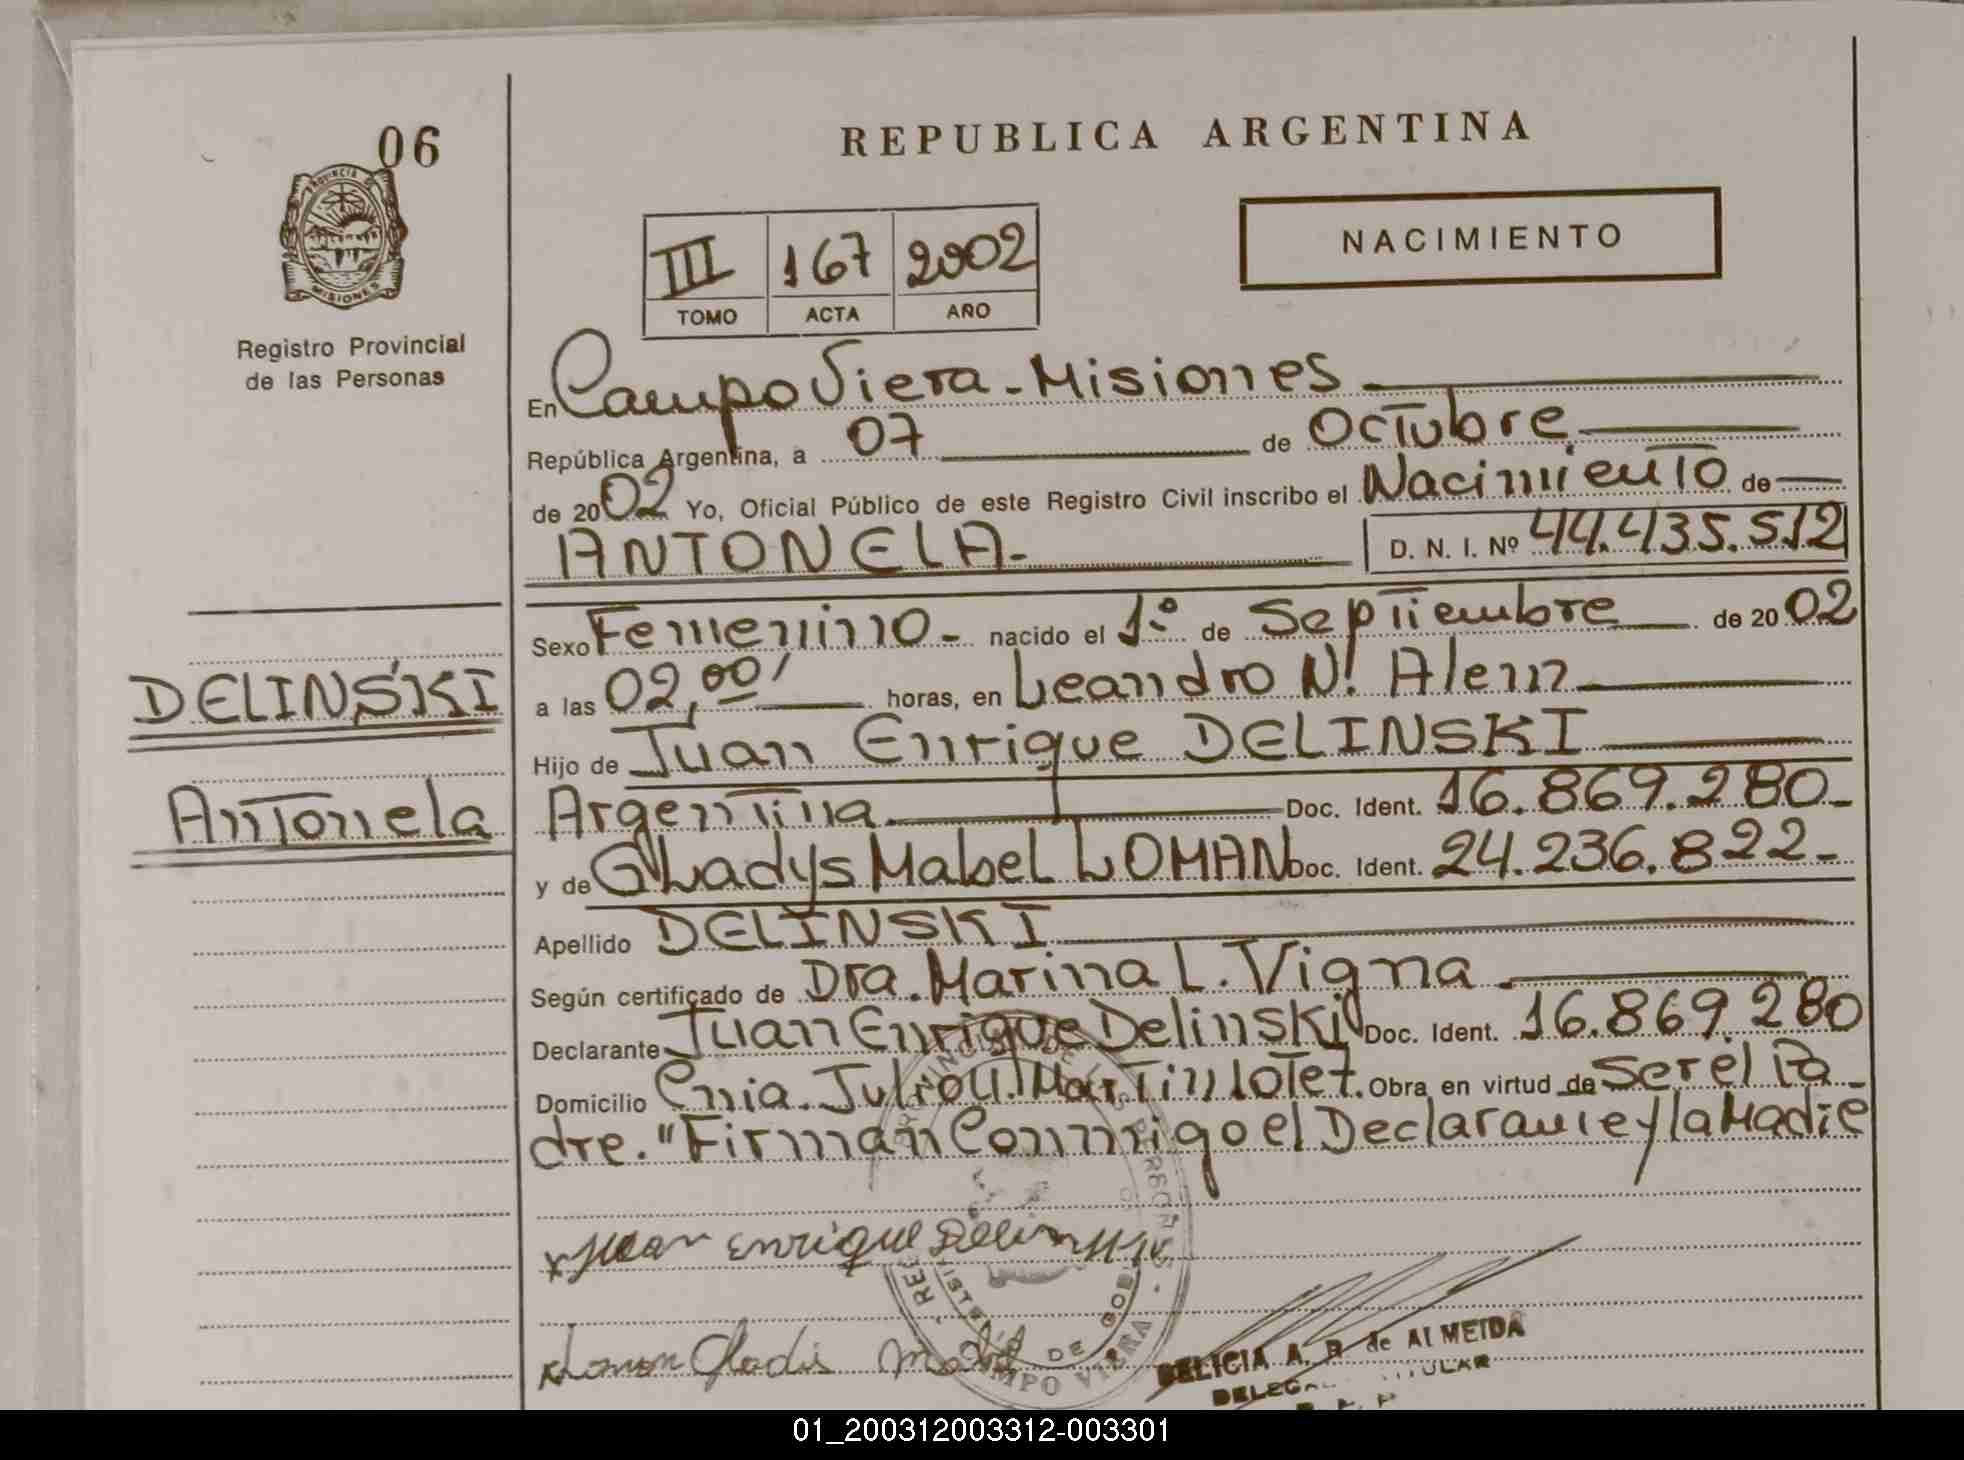 06
PROVINCIA DE
MISIONES
Registro Provincial
de las Personas
REPUBLICA ARGENTINA
NACIMIENTO
III 167 2002
TOMO ACTA AÑO
En Campo Viera - Misiones
República Argentina, a 07 de Octubre
de 2002 Yo, Oficial Público de este Registro Civil inscribo el Nacimiento de
ANTONELA- D. N. I. Nº 44.435.512
Sexo Femenino - nacido el 1º de Septiembre de 2002
DELINSKI
a las 02,00' horas, en Leandro N. Alem
Hijo de Juan Enrique DELINSKI
Antonela
Argentina. Doc. Ident. 16.869.280-
y de GLadys Mabel LOMAN Doc. Ident. 24.236.822-
Apellido DELINSKI
Según certificado de Dra. Marina L. Vigna
Declarante Juan Enrique Delinski Doc. Ident. 16.869.280
Domicilio Cnia. Julio U. Martin Obra en virtud de Ser el Pa
dre. "Firman Conmigo el Declarante y la Madre
x Juan Enrique Delinski
x Loman Gladis
CAMPO VIERA
DELICIA A. B. de ALMEIDA
01_200312003312-003301